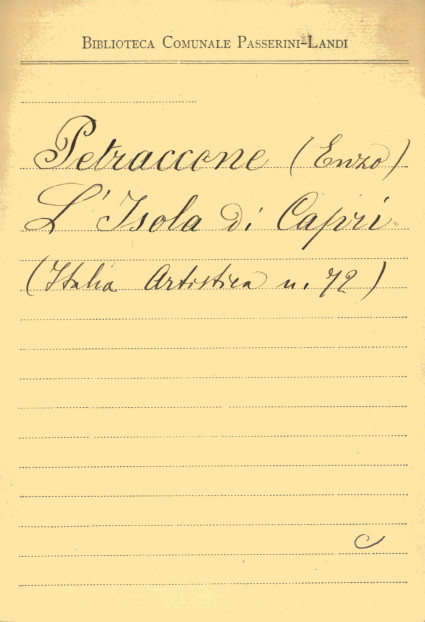 BIBLIOTECA COMUNALE PASSERINI-LANDI
Petraccone (Enzo)
L'Isola di Capri
(Italia Artistica n. 72)